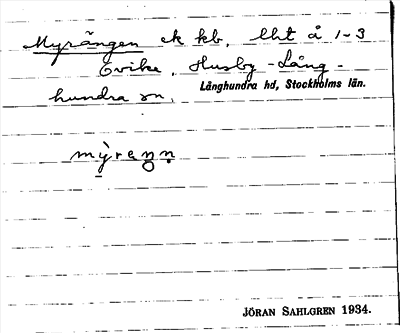 Myrängen ck kb. lht å 1-3
Evike, Husby-Lång-
hundra sn.
Långhundra hd, Stockholms län.
mỳrea̯ṇ
JÖRAN SAHLGREN 1934.